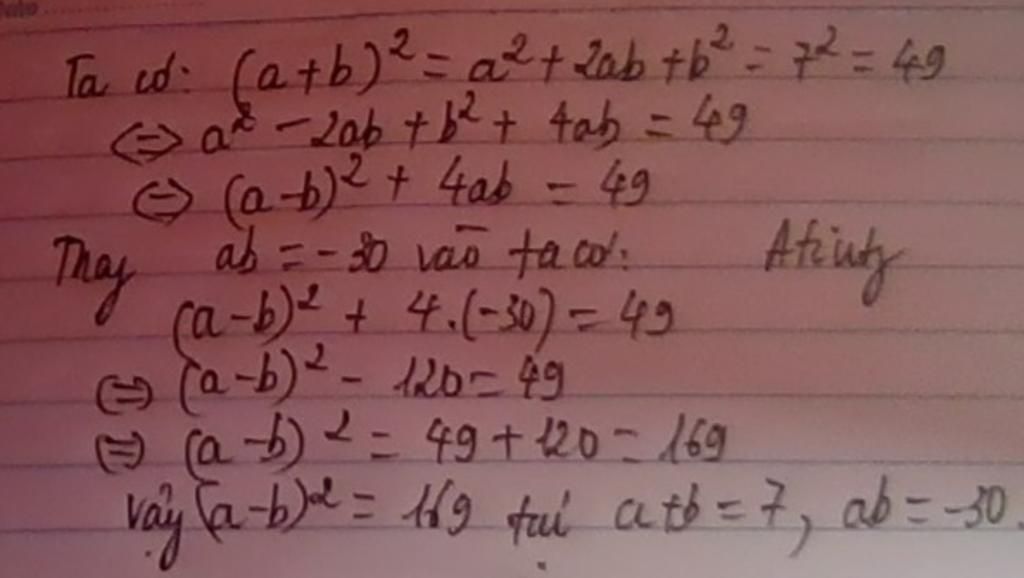 Ta có: (a+b)² = a² + 2ab + b² = 7² = 49
⇔ a² - 2ab + b² + 4ab = 49
⇔ (a-b)² + 4ab = 49
Thay ab = -30 vào ta có:
(a-b)² + 4.(-30) = 49
⇔ (a-b)² - 120 = 49
⇔ (a-b)² = 49 + 120 = 169
Vậy (a-b)² = 169 tại a+b = 7, ab = -30.